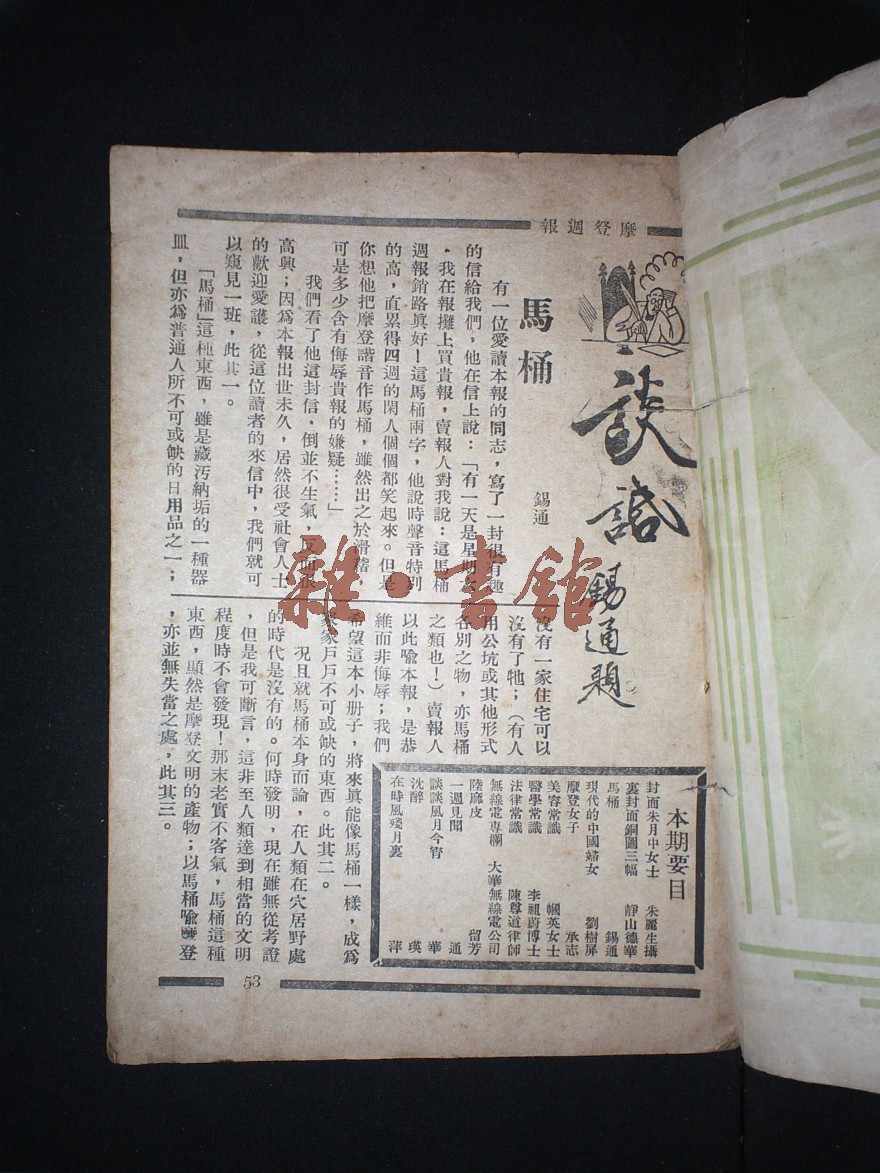 報週登摩
談話
錫通題
馬桶
錫通
有一位愛讀本報的同志，寫了一封很有趣
的信給我們，他在信上說：「有一天是星期
，我在報攤上買貴報，賣報人對我說：這馬桶
週報銷路眞好！這馬桶兩字，他說時聲音特別
的高，直累得四週的閑人個個都笑起來。但是
你想他把摩登諧音作馬桶，雖然出之於滑稽，
可是多少含有侮辱貴報的嫌疑……」
我們看了他這封信，倒並不生氣，反而很
高興；因爲本報出世未久，居然很受社會人士
的歡迎愛護，從這位讀者的來信中，我們就可
以窺見一班，此其一。
「馬桶」這種東西，雖是藏汚納垢的一種器
皿，但亦爲普通人所不可或缺的日用品之一；
沒有一家住宅可以
沒有了牠；（有人
用公坑或其他形式
各別之物，亦馬桶
之類也！）賣報人
以此喩本報，是恭
維而非侮辱；我們
希望這本小册子，將來眞能像馬桶一樣，成爲
家家戶戶不可或缺的東西。此其二。
況且就馬桶本身而論，在人類在穴居野處
的時代是沒有的。何時發明，現在雖無從考證
，但是我可斷言，這非至人類達到相當的文明
程度時不會發現！那末老實不客氣，馬桶這種
東西，顯然是摩登文明的產物；以馬桶喩摩登
，亦並無失當之處，此其三。
本期要目
封面朱月中女士　朱麗生攝
裏封面銅圖三幅　靜山德華
馬桶　錫通
現代的中國婦女　劉樹屏
摩登女子　承志
美容常識　幗英女士
醫學常識　李祖蔚博士
法律常識　陳尊道律師
無線電專欄　大華無線電公司
陸麻皮　留芳
一週見聞　通
談談風月今宵　華
沈醉　瑛
在時風殘月裏　萍
53
雜·書館